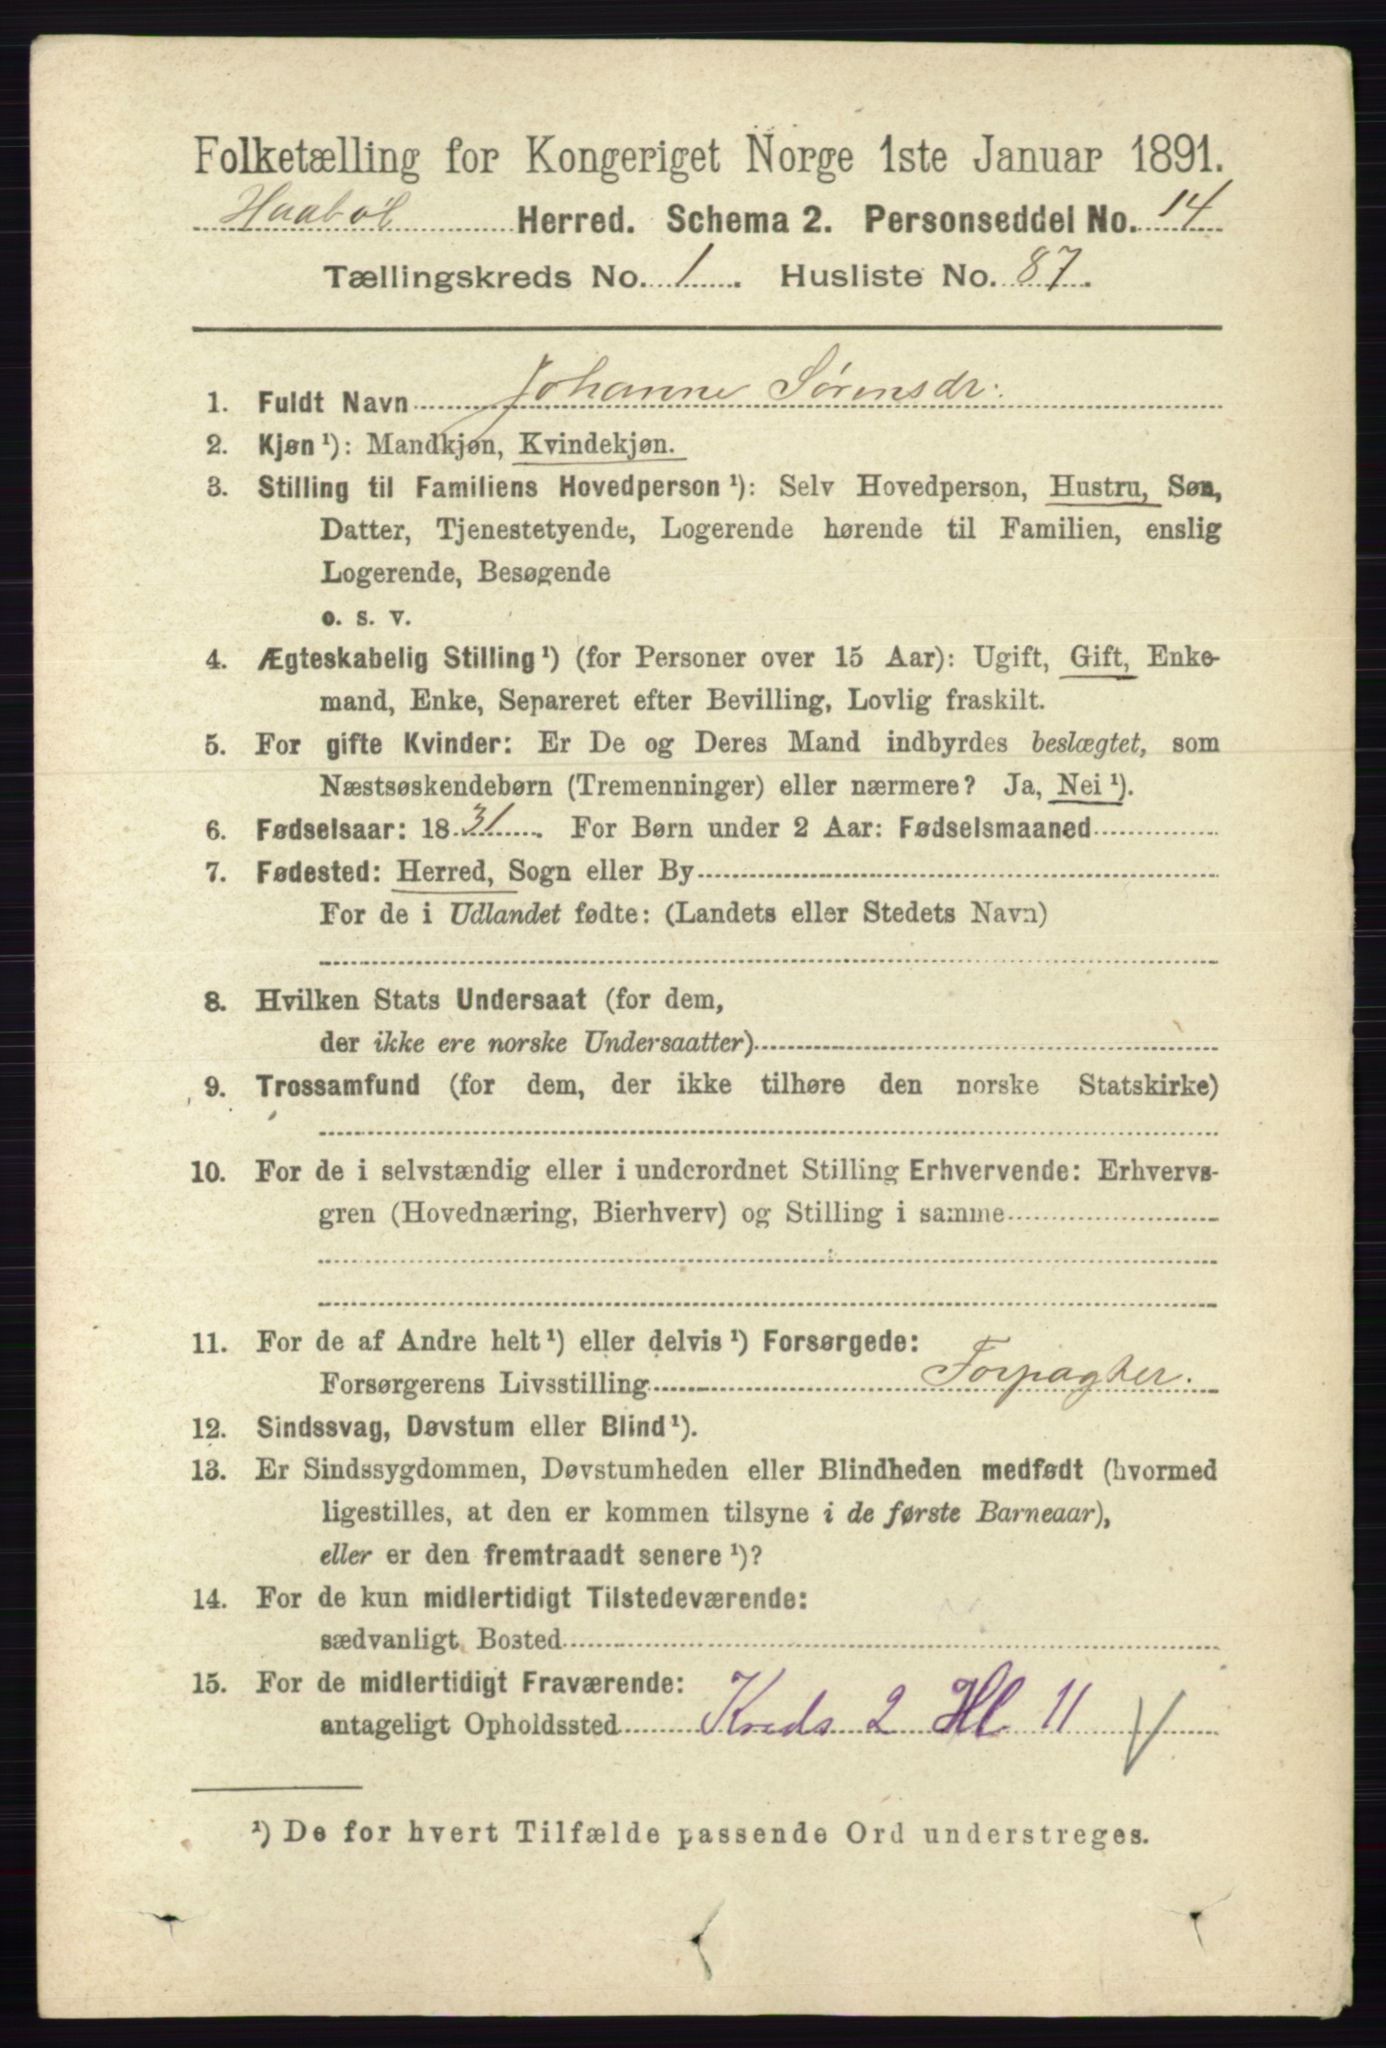 Folketælling for Kongeriget Norge 1ste Januar 1891.
Haabøl Herred. Schema 2. Personseddel No. 14
Tællingskreds No. 1. Husliste No. 87.
1. Fuldt Navn Johanne Sørensdr.
2. Kjøn ¹): Mandkjøn, Kvindekjøn.
3. Stilling til Familiens Hovedperson ¹): Selv Hovedperson, Hustru, Søn,
Datter, Tjenestetyende, Logerende hørende til Familien, enslig
Logerende, Besøgende
o. s. v.
4. Ægteskabelig Stilling ¹) (for Personer over 15 Aar): Ugift, Gift, Enke-
mand, Enke, Separeret efter Bevilling, Lovlig fraskilt.
5. For gifte Kvinder: Er De og Deres Mand indbyrdes beslægtet, som
Næstsøskendebørn (Tremenninger) eller nærmere? Ja, Nei ¹).
6. Fødselsaar: 1831. For Børn under 2 Aar: Fødselsmaaned
7. Fødested: Herred, Sogn eller By
For de i Udlandet fødte: (Landets eller Stedets Navn)
8. Hvilken Stats Undersaat (for dem,
der ikke ere norske Undersaatter)
9. Trossamfund (for dem, der ikke tilhøre den norske Statskirke)
10. For de i selvstændig eller i underordnet Stilling Erhvervende: Erhvervs-
gren (Hovednæring, Bierhverv) og Stilling i samme
11. For de af Andre helt ¹) eller delvis ¹) Forsørgede:
Forsørgerens Livsstilling Forpagter.
12. Sindssvag, Døvstum eller Blind ¹).
13. Er Sindssygdommen, Døvstumheden eller Blindheden medfødt (hvormed
ligestilles, at den er kommen tilsyne i de første Barneaar),
eller er den fremtraadt senere ¹)?
14. For de kun midlertidigt Tilstedeværende:
sædvanligt Bosted
15. For de midlertidigt Fraværende:
antageligt Opholdssted Kreds 2 Hl. 11
¹) De for hvert Tilfælde passende Ord understreges.